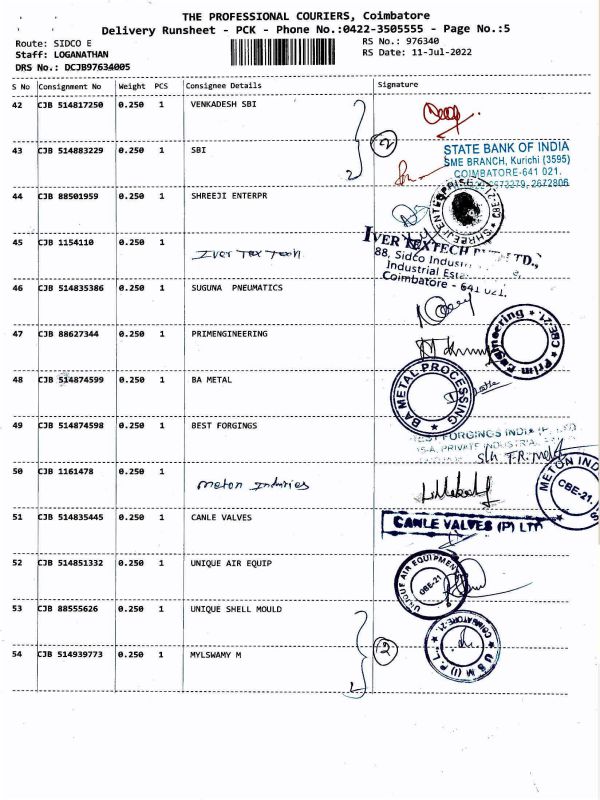 THE PROFESSIONAL COURIERS, Coimbatore
Delivery Runsheet - PCK - Phone No.:0422-3505555 - Page No.:5
Route: SIDCO E
RS No.: 976340
Staff: LOGANATHAN
RS Date: 11-Jul-2022
DRS No.: DCJB97634005
S No Consignment No Weight PCS Consignee Details Signature
42 CJB 514817250 0.250 1 VENKADESH SBI
2
STATE BANK OF INDIA
43 CJB 514883229 0.250 1 SBI
SME BRANCH, Kurichi (3595)
COIMBATORE-641 021.
2672806
44 CJB 88501959 0.250 1 SHREEJI ENTERPR
SHREEJI ENTERPRISE CBE-21
45 CJB 1154110 0.250 1 Iver Tex Teen
IVER TEXTECH TD.,
88, Sidco Indust
Industrial Esta
Coimbatore - 641 021.
46 CJB 514835386 0.250 1 SUGUNA PNEUMATICS
47 CJB 88627344 0.250 1 PRIMENGINEERING
Prim Engineering CBE-21.
48 CJB 514874599 0.250 1 BA METAL
BA METAL PROCESSING
49 CJB 514874598 0.250 1 BEST FORGINGS
BEST FORGINGS INDIA (P) LTD
PRIVATE INDUSTRIAL
50 CJB 1161478 0.250 1 Meton Industries
METON IND
CBE-21.
51 CJB 514835445 0.250 1 CANLE VALVES
CANLE VALVES (P) LTD
52 CJB 514851332 0.250 1 UNIQUE AIR EQUIP
UNIQUE AIR EQUIPMENT
CBE-21
53 CJB 88555626 0.250 1 UNIQUE SHELL MOULD
2
COIMBATORE-21.
U S M (I) P. L.
54 CJB 514939773 0.250 1 MYLSWAMY M